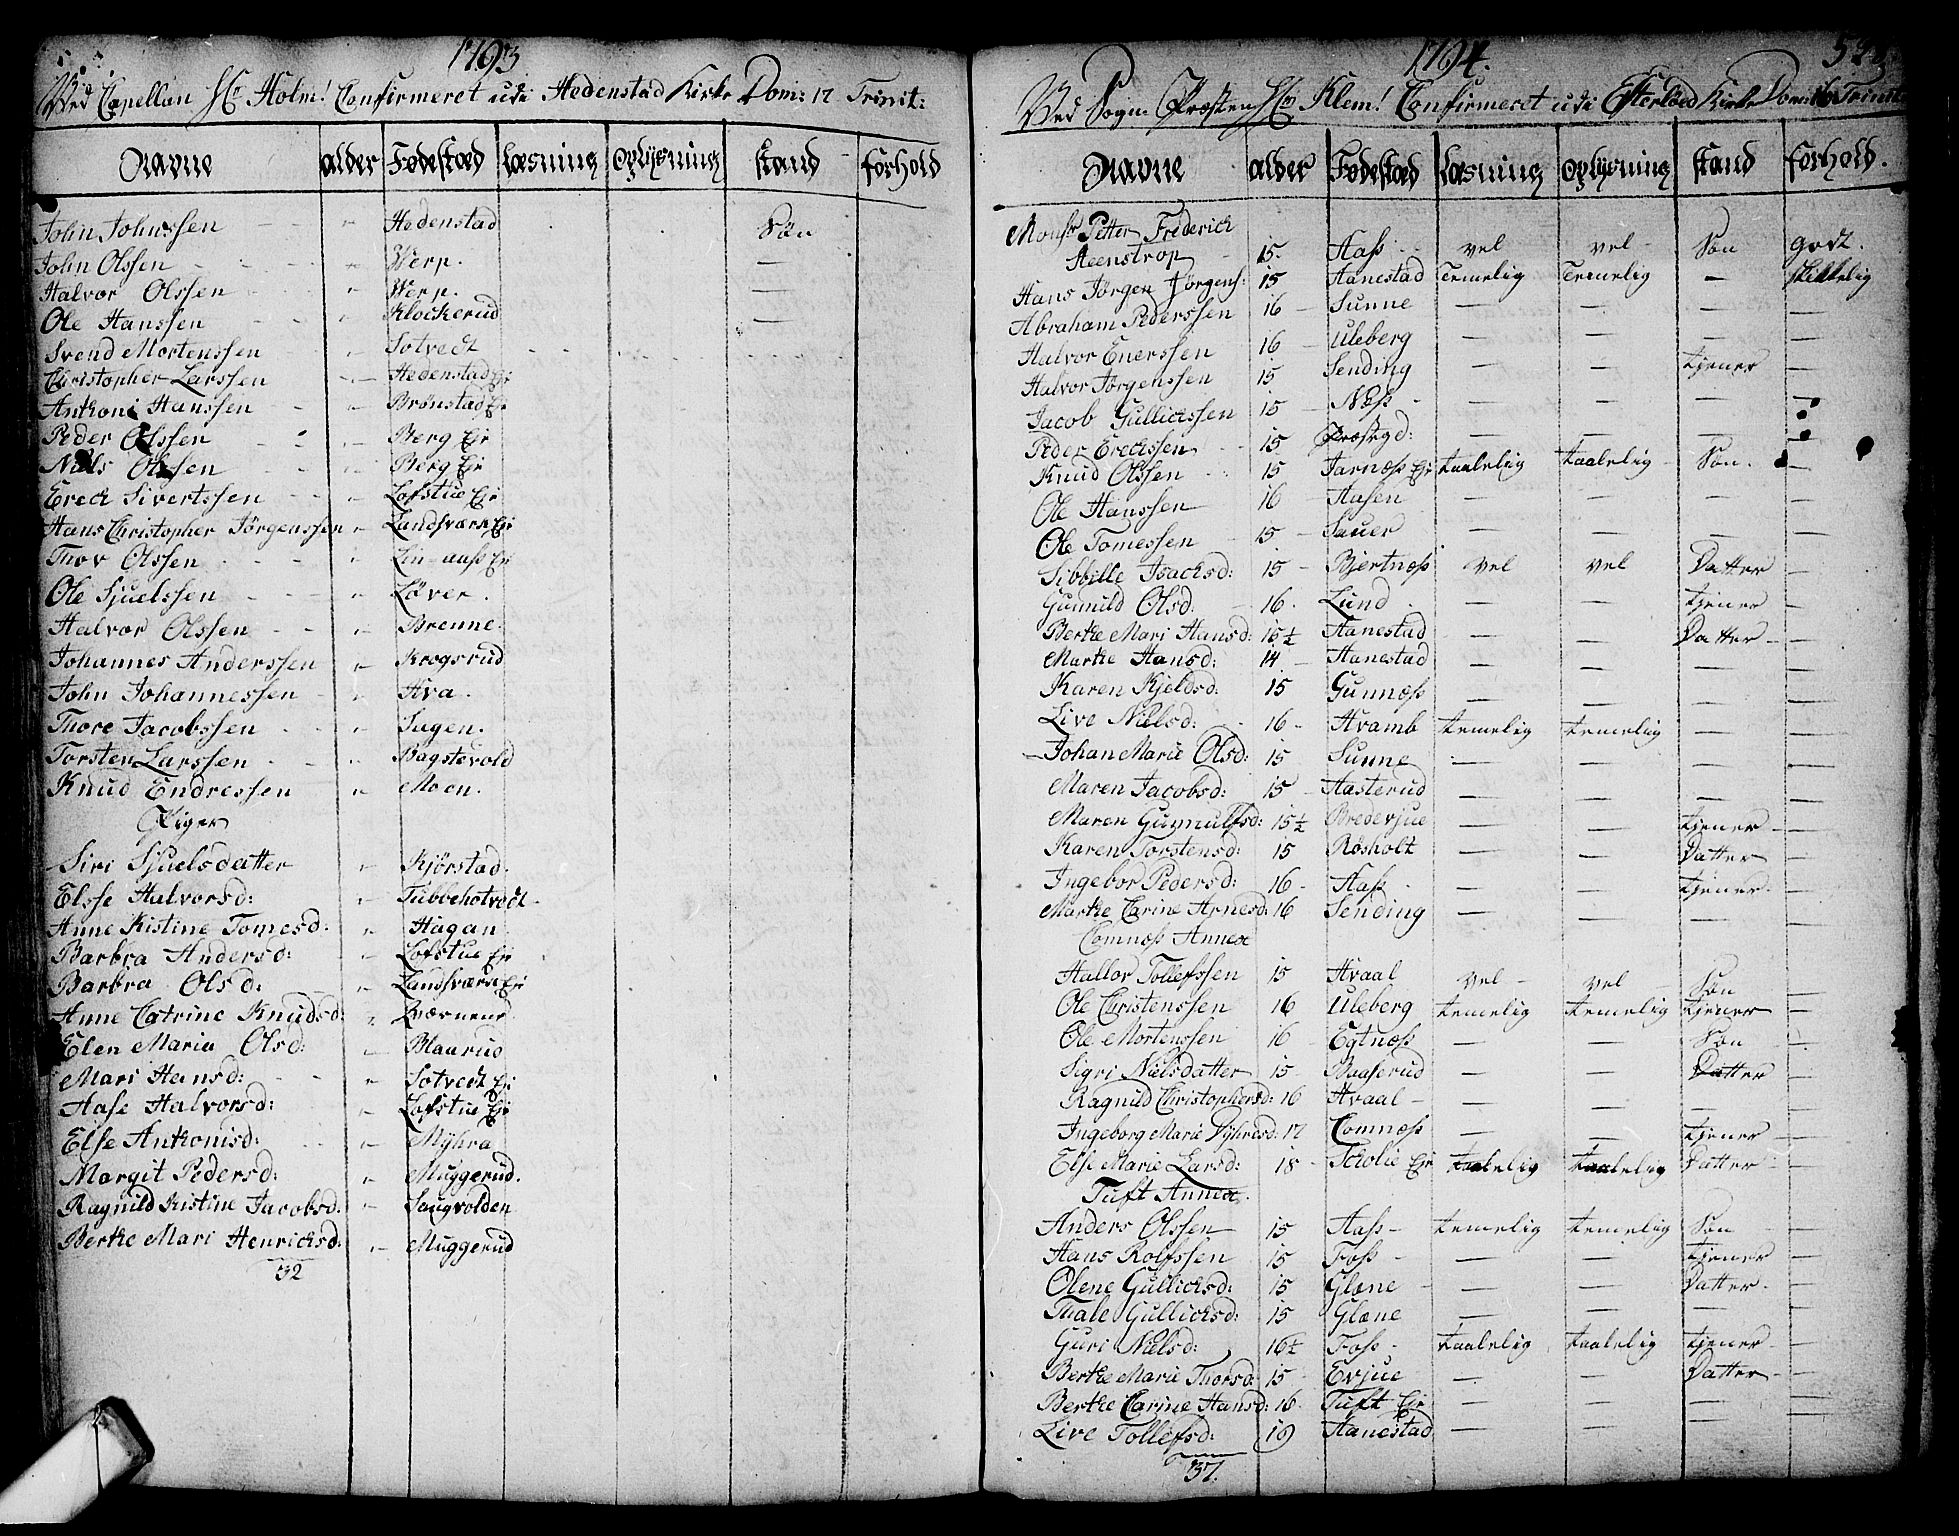 1793
Ved Capellan Hr Holm! Confirmeret udi Hedenstad Kirke Dom: 17 Trinit:
Navne alder Fødestæd Læsning Oplysning stand forhold
John Johnssen " Hedenstad Søn
John Olssen " Werp. —
Halvor Olssen " Werp.
Ole Hanssen " Klockerud —
Svend Mortenssen " Sotvedt
Christopher Larssen " Hedenstad Eje
Anthoni Hanssen " Brønstad Eje
Peder Olssen " Berg Eje
Niels Olssen " Berg Eje
Erech Sivertssen " Lofstue Eje
Hans Christopher Jørgenssen " Landsværk Eje
Thov Olssen " Lin-aass Eje
Ole Sjuelssen " Løver.
Halvor Olssen " Brenne.
Johannes Anderssen " Krogsrud
John Johannessen " Hva.
Thore Jacobssen " Sugen.
Torsten Larssen " Bagstevold
Knud Endressen " Moen.
Piger
Siri Sjuelsdatter " Kjørstad.
Elsse Halvorsd: " Tubbehotvedt
Anne Kistine Tomesd: " Hagan
Barbra Andersd: " Lofstue Eje
Barbra Olsd: " Landsværk Eje
Anne Catrine Knudsd: " Qværnene
Elen Maria Olsd: " Blaarud
Mari Hansd: " Sotvedt Eje
Aase Halvorsd: " Lofstue Eje
Else Anthonisd: " Myhra
Margit Pedersd: " Muggerud.
Ragnild Kistine Jacobsd: " Saugvolden
Berthe Mari Henrichsd: " Muggerud
32
1794.
Ved Sogne Præsten Hr Klem! Confirmeret udi Efterløed Kirke Dom: 16 Trinit:
Navne alder Fødestæd Læsning Oplysning stand forhold.
Monsr Petter Frederich
Steenstrop 15. Aass vel vel Søn godt.
Hans Jørgen Jørgens: 15 Hanestad Temelig Temelig — skikkelig
Abraham Pederssen 16 Sunne — — — —
Halvor Enerssen 16 Uleberg — — — —
Halvor Jørgenssen 15 Sending — — tjener —
Jacob Gullickssen 15 Næss — — — —
Peder Erechssen 15 Præstegd: — — — —
Knud Olssen 15 Jarnæss Eje taalelig taalelig Søn. —
Ole Hanssen 16 Aasen — — — —
Ole Tomessen 15 Sauer — — — —
Sibbille Isachsd: 15 Bjertnæss vel vel Datter —
Gunnild Olsd. 16. Lund — — tjener —
Berthe Mari Hansd: 16½ Hanestad — — Datter —
Marthe Hansd: 14 Hanestad — — — —
Karen Kjeldsd: 15 Gunnæss — — — —
Live Nielsd: 16 Hvamb temelig temelig — —
Johan Marie Olsd: 15 Sunne — — — —
Maren Jacobsd: 15 Hasterud — — — —
Maren Gunnulfsd: 15½ Bredevjue — — tjener —
Karen Torstensd: 15 Røsholt — — Datter —
Ingebor Pedersd: 16 Aass — — tjener —
Marthe Carine Arnesd: 16 Sending — — — —
Comnæss Annex
Hallor Tollefssen 15 Hvaal vel vel Søn —
Ole Christenssen 16 Uleberg temelig temelig tjener —
Ole Mortenssen 16 Egtnæss — — Søn —
Sigri Nielsdatter 15 Baaserud — — Datter —
Ragnild Christophersd: 16 Hvaal — — — —
Ingeborg Marie Dyhresd: 17 Comnæss — — tjener —
Else Marie Larsd: 18 Skolie Eje taalelig taalelig Datter —
Tuft Annex.
Anders Olssen 15 Aass temelig temelig Søn —
Hans Rolfssen 15 Foss — — tjener —
Olene Gullichsd: 15 Glæne — — Datter —
Thale Gullichsd: 15 Glæne — — — —
Guri Nielsd: 16½ Foss taalelig taalelig tjener —
Berthe Marie Thorsd 15 Evjue — — Datter —
Berthe Carine Hansd: 16 Tuft Eje — — — —
Live Tollefsd: 19 Hanestad — — — —
37.